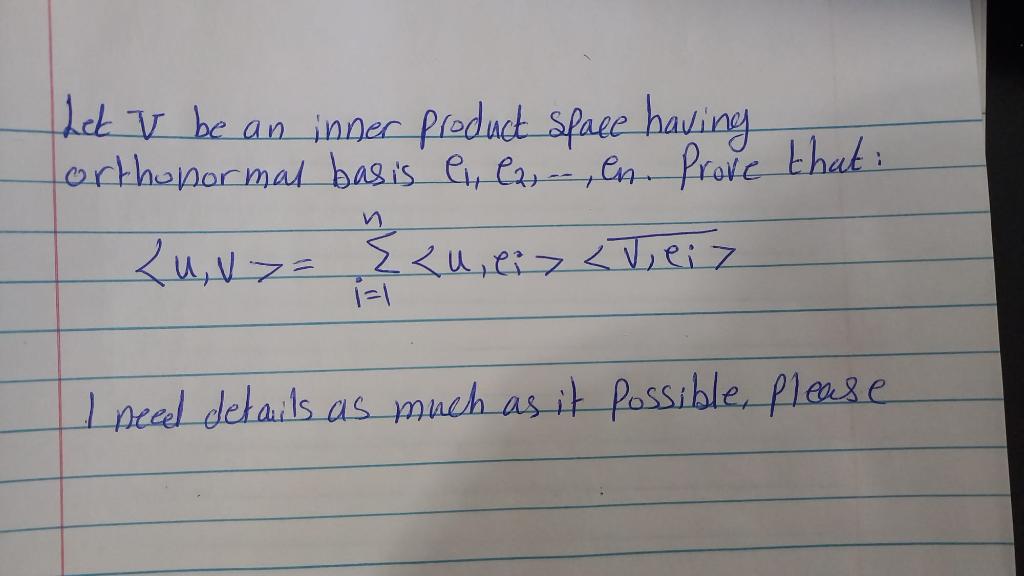 Let V be an inner product space having
orthonormal basis e₁, e₂, --, en. Prove that:
<u,v> = n∑i=1 <u,ei> <\overline{v,ei}>
I need details as much as it possible, please